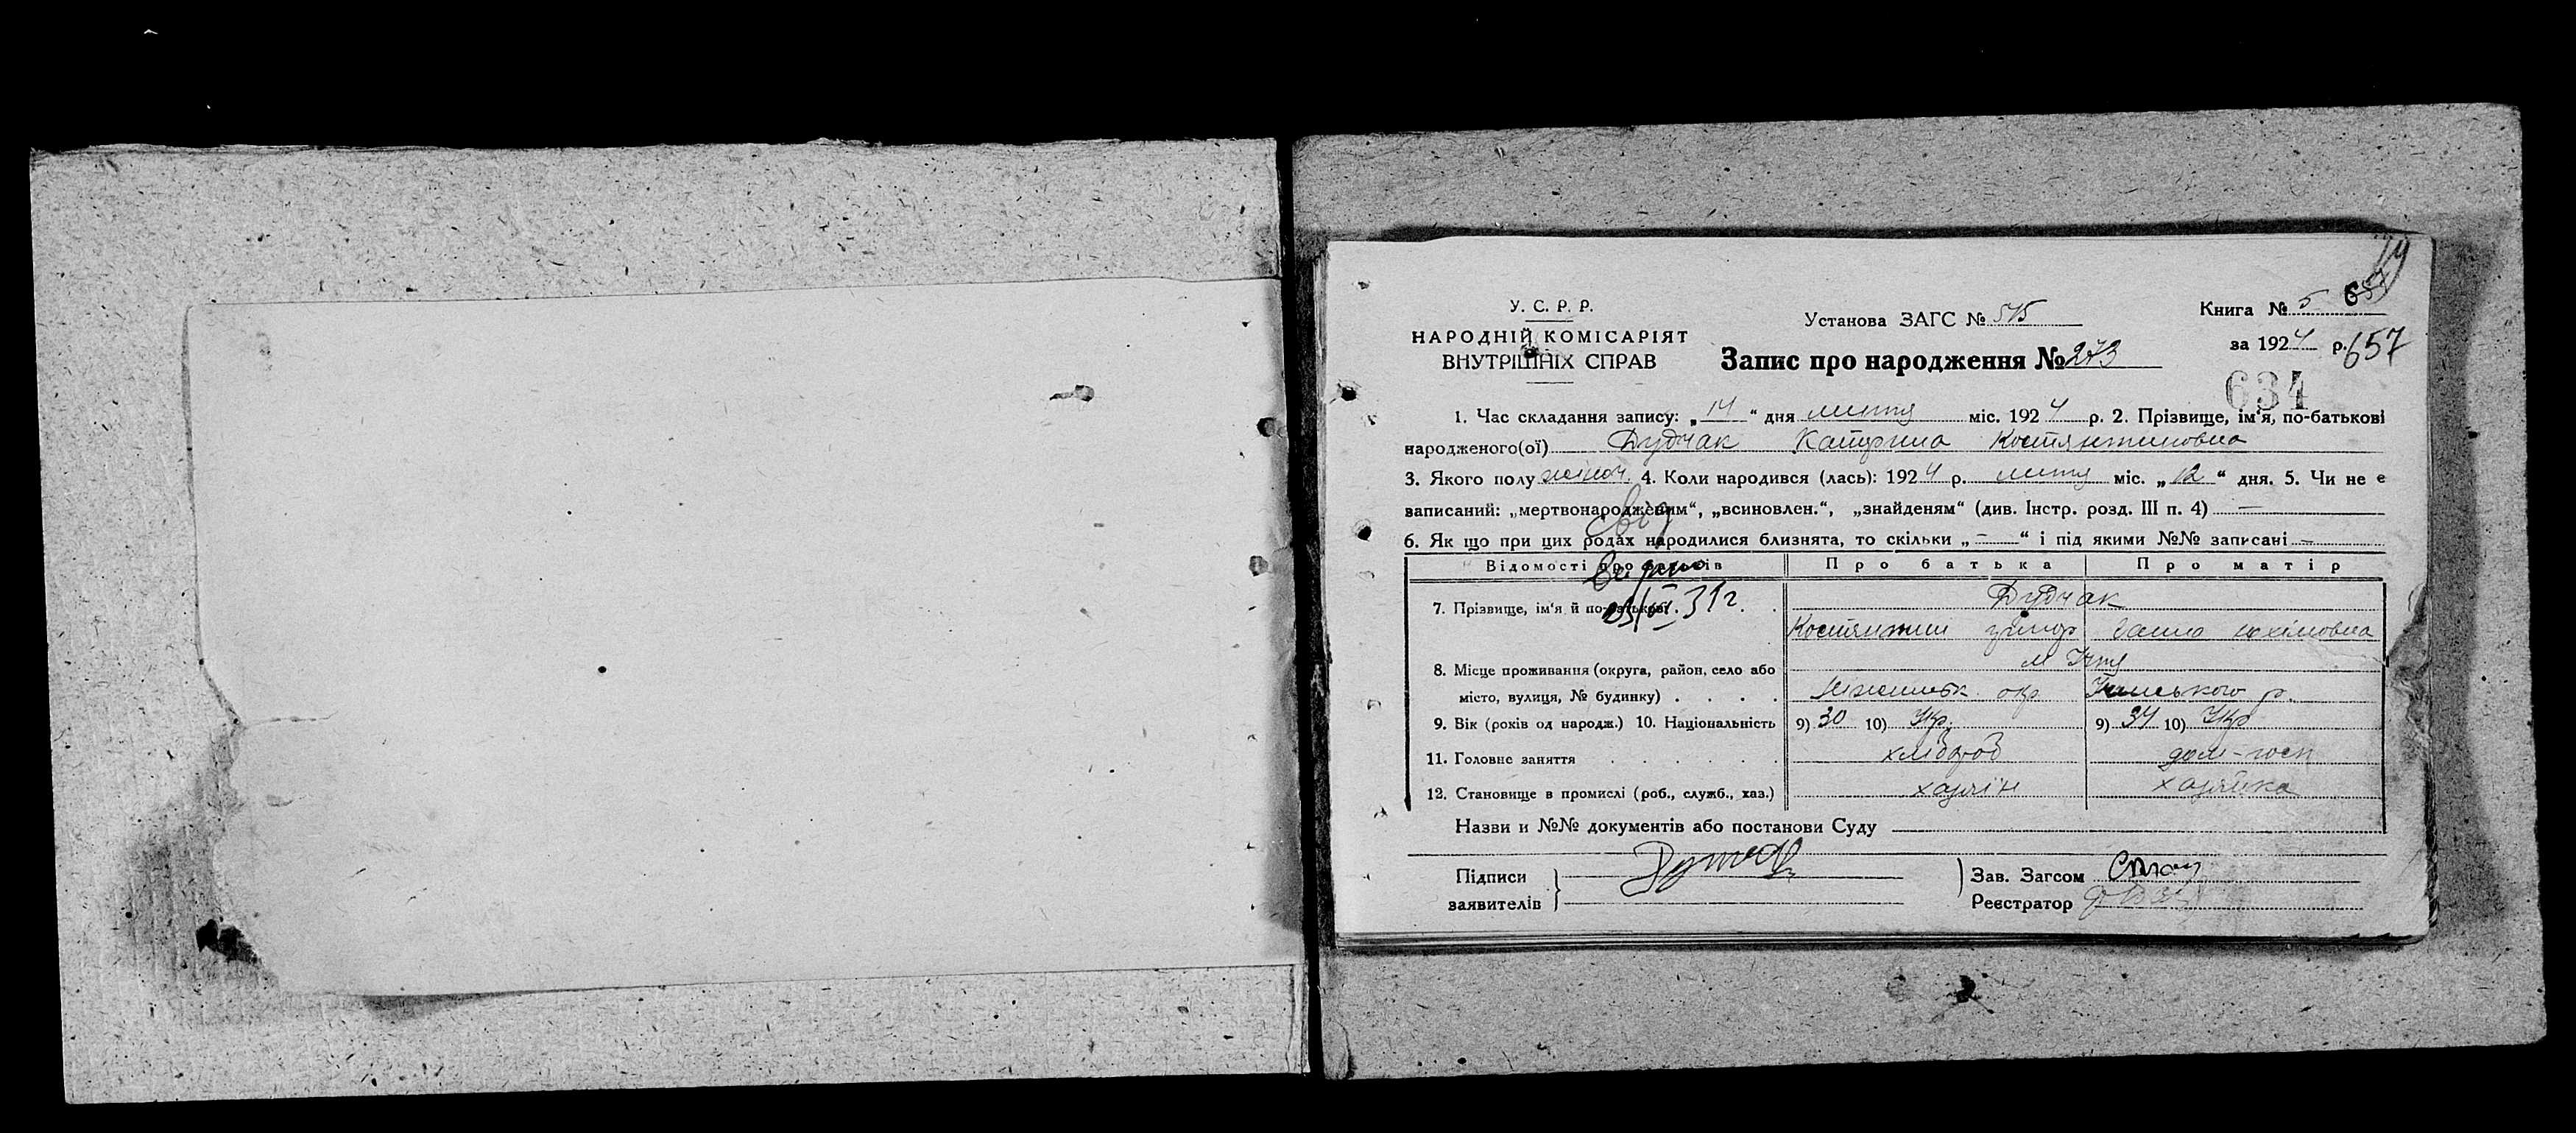 У. С. Р. Р.
НАРОДНІЙ КОМІСАРІЯТ
ВНУТРІШНІХ СПРАВ
Установа ЗАГС № 515
Книга № 5
Запис про народження № 273
за 1924 р. 657
634
1. Час складання запису: „14“ дня міс. 1924 р. 2. Прізвище, ім'я, по-батькові
народженого(ої) Дудчак Катерина Костянтиновна
3. Якого полу жіноч. 4. Коли народився (лась): 1924 р. міс. „12“ дня. 5. Чи не є
записаний: „мертвонародженим“, „всиновлен.“, „знайденям“ (див. Інстр. розд. III п. 4) —
6. Як що при цих родах народилися близнята, то скільки „–“ і під якими №№ записані –
Відомості про батьків Про батька Про матір
7. Прізвище, ім'я й по-батькові Дудчак
31г.
Костянтин Ганна Юхімовна
8. Місце проживання (округа, район, село або
місто, вулиця, № будинку) окр р.
9. Вік (років од народж.) 10. Національність 9) 30 10) Укр. 9) 34 10) Укр
11. Головне заняття хлібороб дом-госп
12. Становище в промислі (роб., служб., хаз.) хазяїн хазяйка
Назви и №№ документів або постанови Суду
Підписи
заявителів
Зав. Загсом
Реєстратор